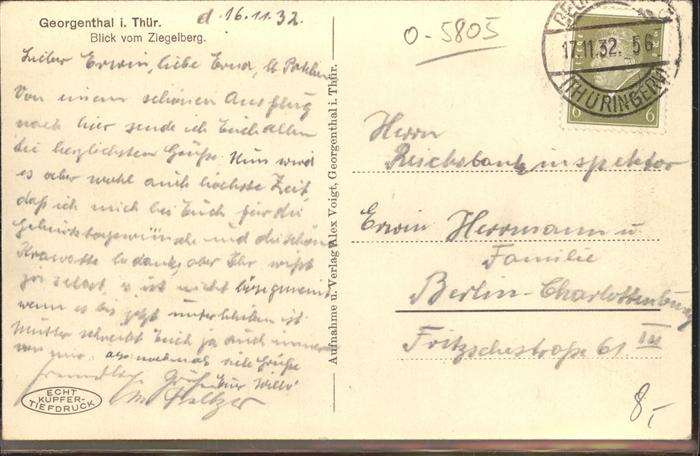 Georgenthal i. Thür.
Blick vom Ziegelberg.
d. 16.11.32.
O-5805
17.11.32. 5 6
(THÜRINGEN)
6 6
Lieber Erwin, liebe Erna,
Von einem schönen Ausflug
nach hier sende ich Euch allen
die herzlichsten Grüße. Nun wird
es aber wohl auch höchste Zeit,
daß ich mich bei Euch für die
Geburtstagswünsche und die schöne
Krawatte bedanke, aber Ihr wißt
ja selbst, es ist nicht bösgemeint
wenn es bis jetzt unterblieben ist.
Mutter schreibt Euch ja auch immer
von mir. Also nochmals viele Grüße
Euer Willi
Aufnahme u. Verlag Alex Voigt, Georgenthal i. Thür.
Herrn
Reichsbankinspektor
Erwin Herrmann u.
Familie
Berlin-Charlottenburg
Fritzschestraße 61 III
ECHT
KUPFER-
TIEFDRUCK
8,-